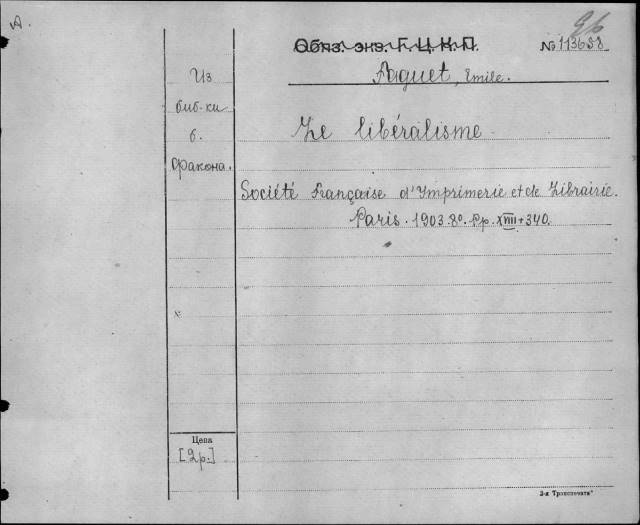 А.
Обяз. экз. Г. Ц. К. П.
№ 113688
Из
биб-ки
б.
Факона.
Faguet, Emile.
Le libéralisme
Société Française d'Imprimerie et de Librairie.
Paris. 1903. 8º. Pp. XVIII + 340.
Цена
[2р.]
2-я Транспечати"